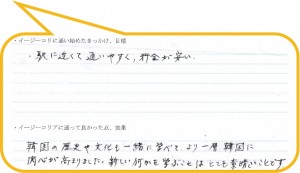 ・イージーコリに通い始めたきっかけ、目標
・駅に近くて通いやすく、料金が安い
・イージーコリアに通って良かった点、効果
韓国の歴史や文化も一緒に学べて、より一層韓国に
関心が高まりました。新しい何かを学ぶことはとても素晴しいことです